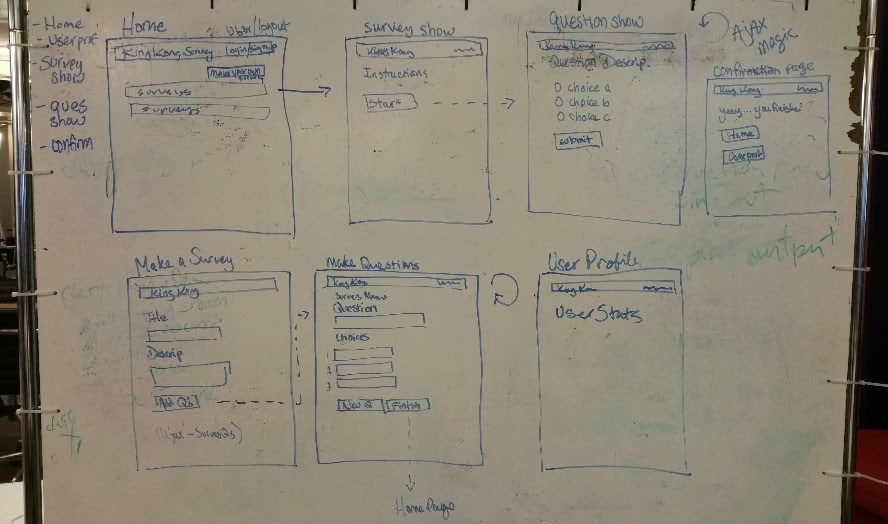 - Home
- userprof
Survey
show
- ques
show
- confirm
Home
User/logout
King Kong Survey login/signup
make ur own
surveys
surveys
survey show
King Kong
Instructions
Start
question show
King Kong
Question Descrip.
O choice a
O choice b
O choice c
submit
AJAX
magic
confirmation page
King Kong
yeay... you finished!
Home
Userprof
output
Make a Survey
King Kong
Title
Descrip
Add Q's
Make Questions
King Kong
Survey Name
Question
choices
1
2
3
New Q
Finish
Home Page
User Profile
King Kon
User Stats